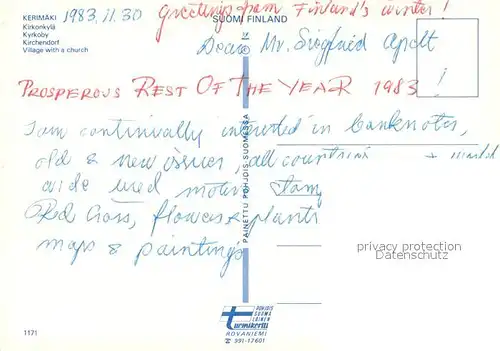 KERIMÄKI 1983.11.30 Greetings from Finland's winter!
Kirkonkylä SUOMI FINLAND
Kyrkoby
Kirchendorf Dear Mr. Siegfried Apelt
Village with a church
PROSPEROUS REST OF THE YEAR 1983!
I am continually interested in banknotes,
old & new issues, all countries + world
wide used motiv stamp
Red Cross, flowers & plants
maps & paintings
PAINETTU POHJOIS-SUOMESSA
privacy protection
Datenschutz
POHJOIS
SUOMA
LAINEN
turmikortti
ROVANIEMI
☎ 991-17601
1171